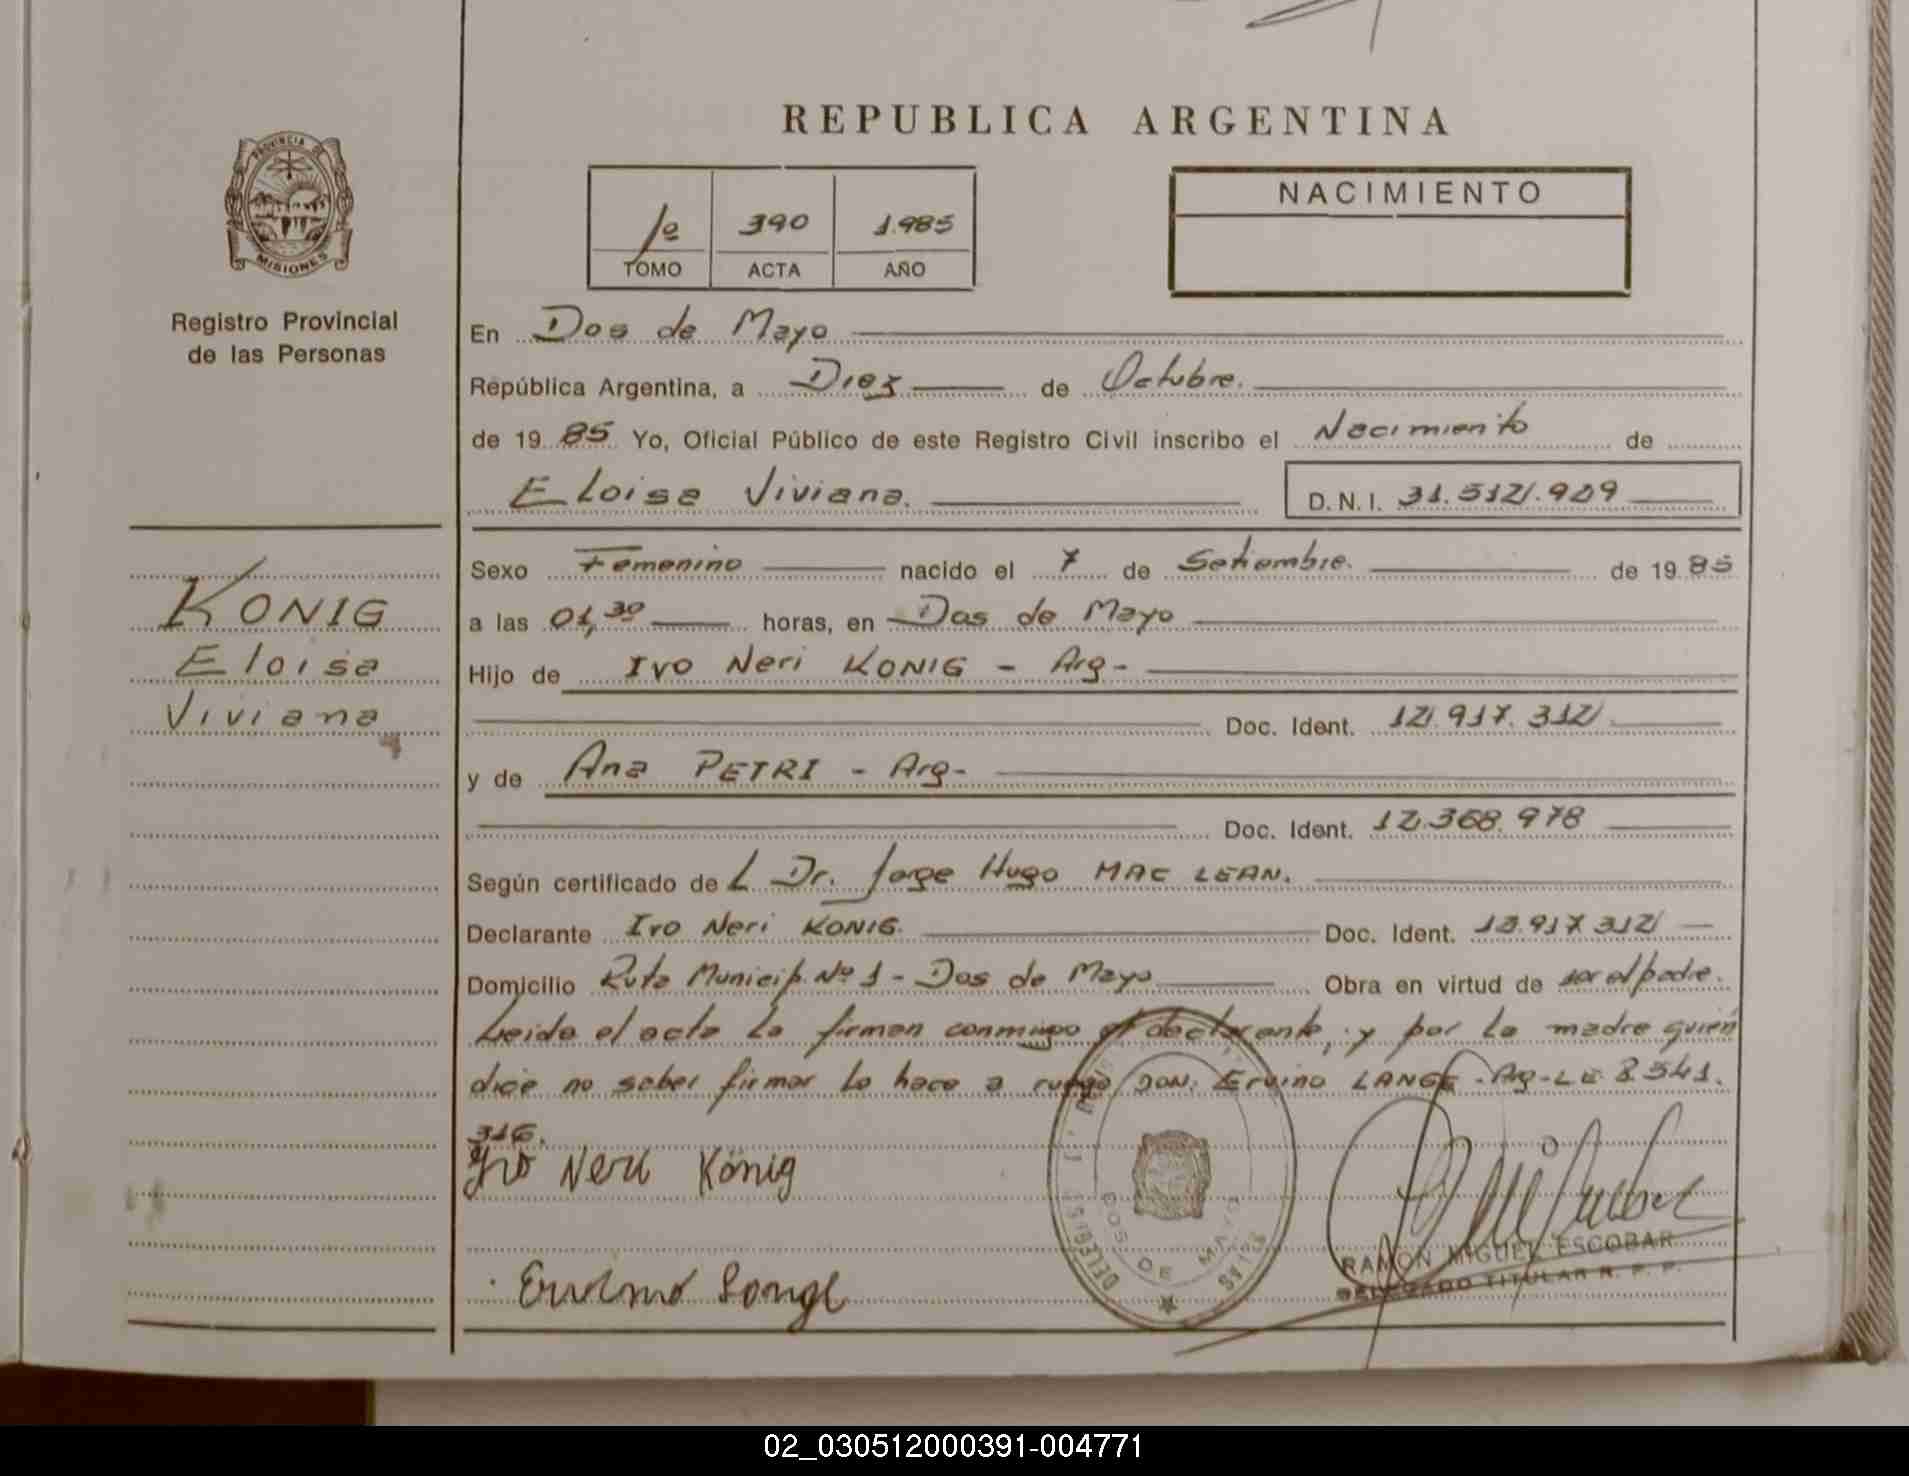 REPUBLICA ARGENTINA
PROVINCIA DE
MISIONES
Registro Provincial
de las Personas
1º 390 1.985
TOMO ACTA AÑO
NACIMIENTO
En Dos de Mayo
República Argentina, a Diez de Octubre.
de 1985 Yo, Oficial Público de este Registro Civil inscribo el Nacimiento de
Eloisa Viviana. D.N.I. 31.512.909
KONIG
Eloisa
Viviana
Sexo Femenino nacido el 7 de Setiembre. de 1985
a las 01,30 horas, en Dos de Mayo
Hijo de Ivo Neri KONIG - Arg-
Doc. Ident. 12.917.312
y de Ana PETRI - Arg-
Doc. Ident. 12.368.978
Según certificado del Dr. Jorge Hugo MAC LEAN.
Declarante Ivo Neri KONIG. Doc. Ident. 12.917.312
Domicilio Ruta Municip. Nº 1 - Dos de Mayo Obra en virtud de ser el padre.
Leida el acta la firman conmigo el declarante, y por la madre quien
dice no saber firmar lo hace a ruego DON. Ervino LANGE - Arg - LE 8.541.
316.
Ivo Neri König
DOS DE MAYO
RAMON MIGUEL ESCOBAR
DELEGADO TITULAR R. P. P.
02_030512000391-004771